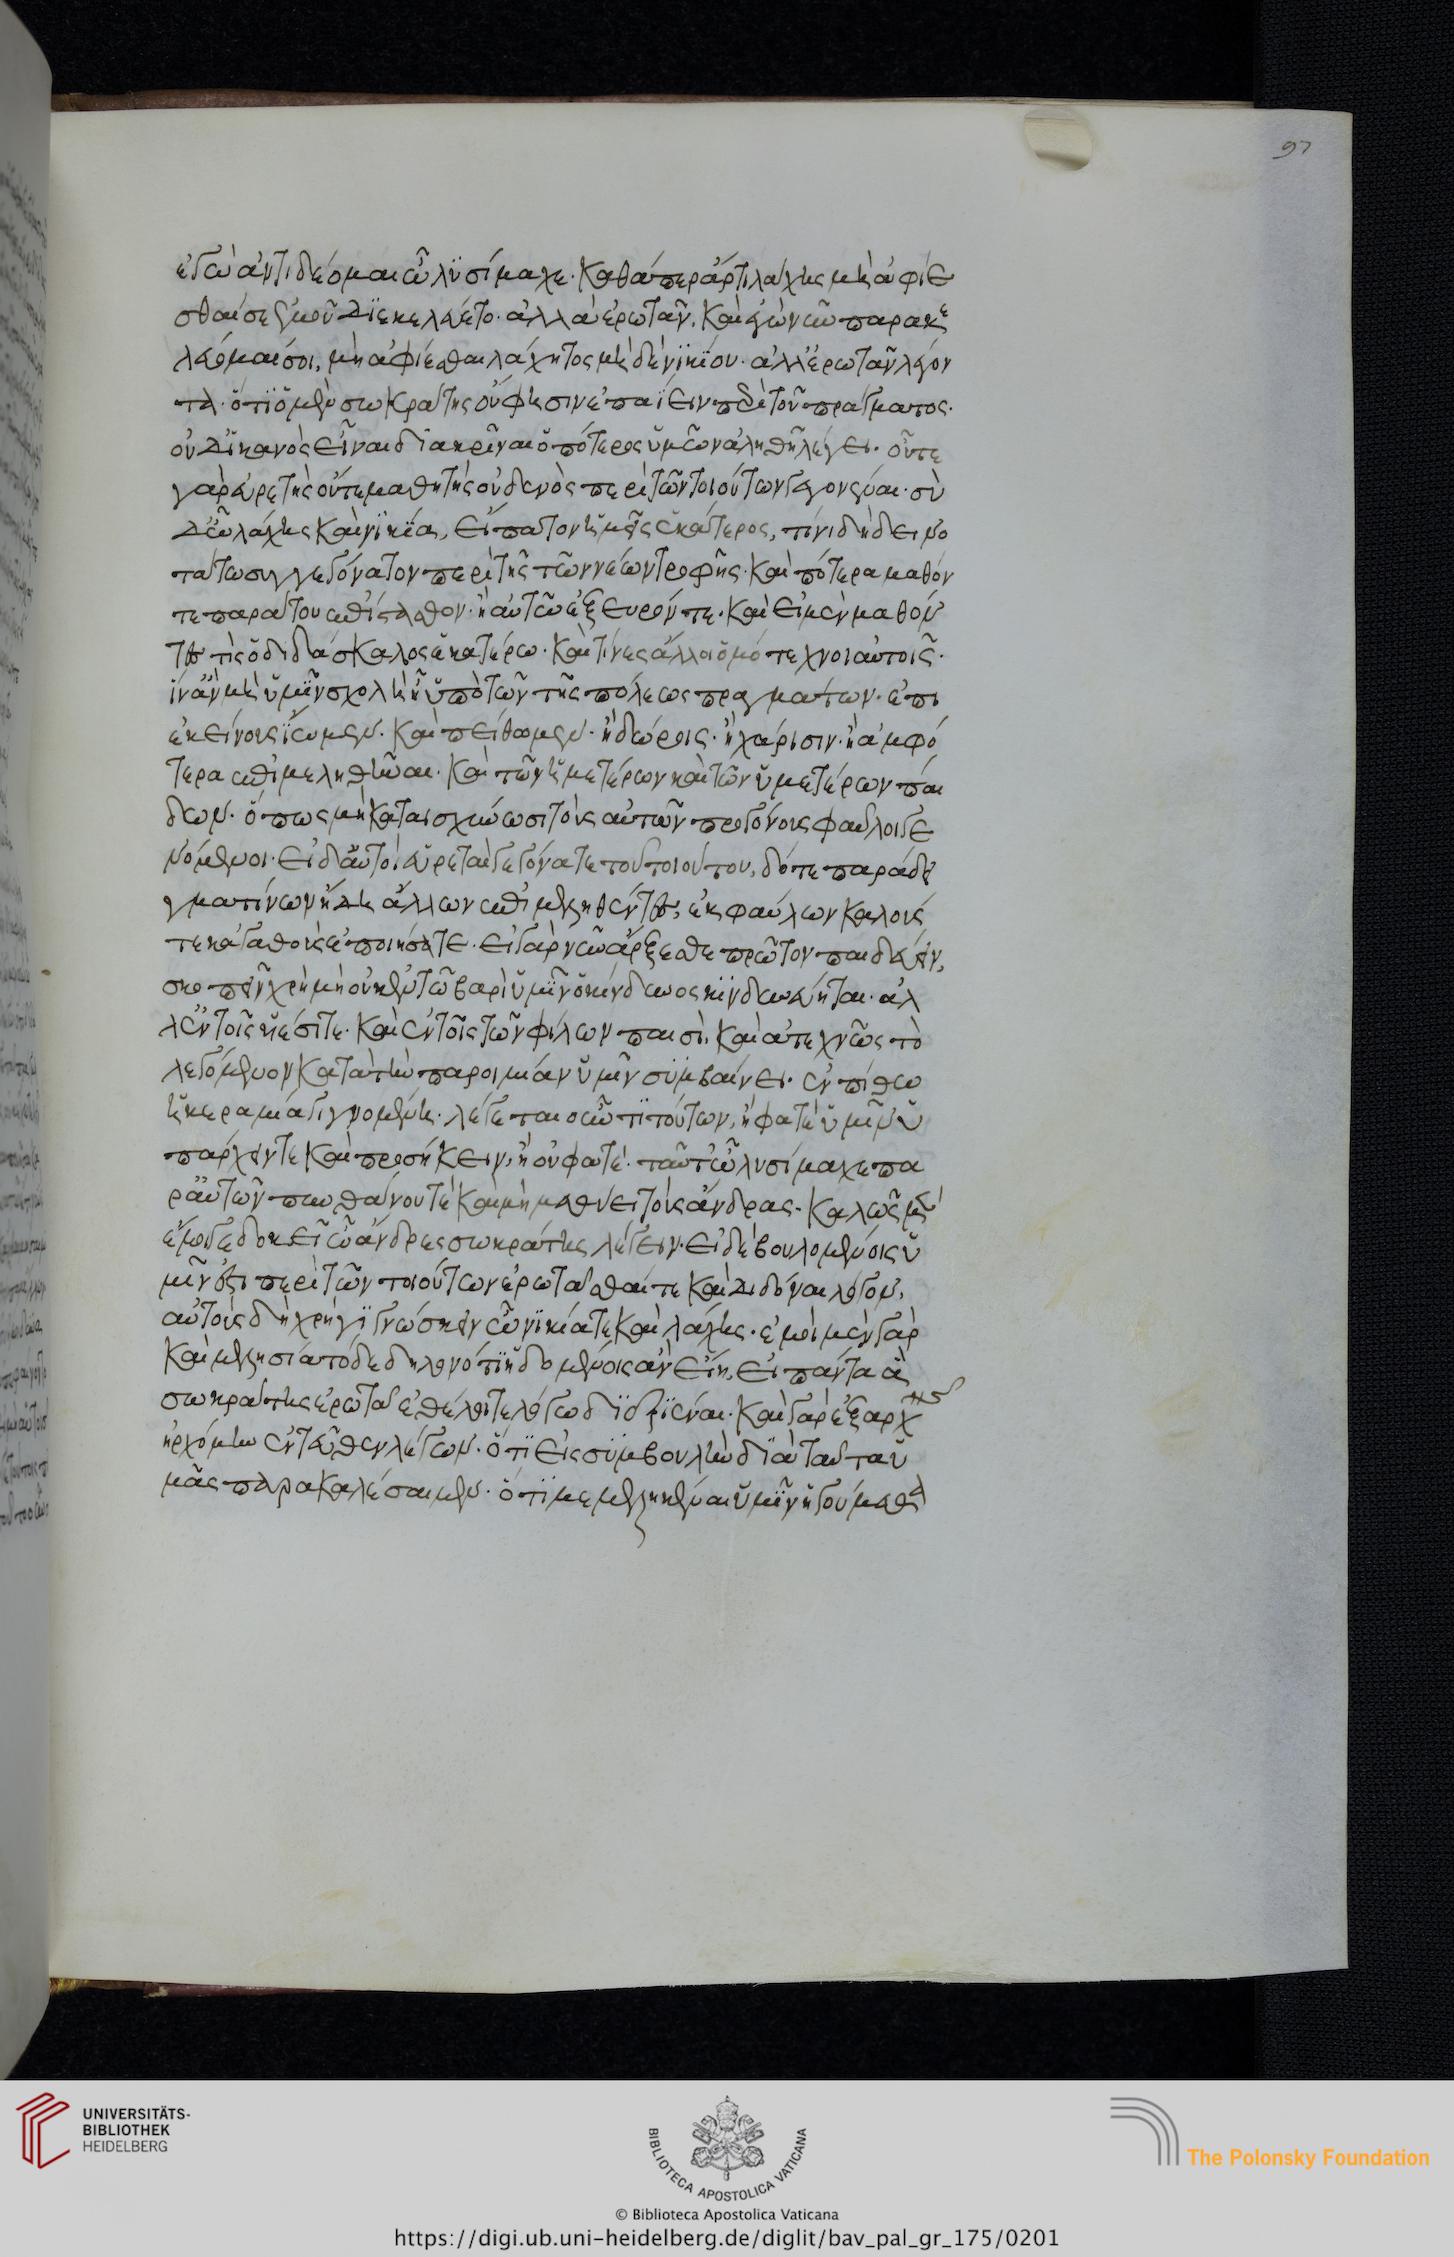 ἐγὼ ἀντιδέομαι ὦ λυσίμαχε· καθάπερ ἄρτι λάχης μὴ ἀφίε
σθαί σε ἐμοῦ διεκελεύετο· ἀλλὰ ἐρωτᾶν, καὶ ἐγὼ νῦν παρακε
λεύομαί σοι, μὴ ἀφίεσθαι λάχητος μηδὲ νϊκϊου· ἀλλ' ἐρωτᾶν λέγον
τα· ὅτϊ ὁ μὲν σωκράτης οὔ φησιν ἐπαΐειν περὶ τοῦ πράγματος·
οὐδ' ἱκανὸς εἶναι διακρῖναι ὁπότερος ὑμῶν ἀληθῆ λέγει· οὔτε
γὰρ εὑρετὴς οὔτε μαθητὴς οὐδενὸς περὶ τῶν τοιούτων γεγονέναι· σὺ
δ' ὦ λάχης καὶ νϊκία, εἴπατον ἡμῖν ἑκάτερος, τίνι δὴ δεινο
τάτω συγγεγόνατον περὶ τῆς τῶν νέων τροφῆς· καὶ πότερα μαθόν
τε παρά του ἐπίστασθον· ἢ αὐτὼ ἐξευρόντε· καὶ εἰ μὲν μαθόν
τες τὶς ὁ διδάσκαλος ἑκατέρω· καὶ τίνες ἄλλοι ὁμότεχνοι αὐτοῖς·
ἵν' ἂν μὴ ὑμῖν σχολὴ ἦ ὑπὸ τῶν τῆς πόλεως πραγμάτων· ἐπι
ἐκείνους ἴωμεν· καὶ πείθωμεν· ἢ δώροις· ἢ χάρισιν· ἢ ἀμφό
τερα ἐπιμεληθῆναι· καὶ τῶν ἡμετέρων καὶ τῶν ὑμετέρων παί
δων· ὅπως μὴ καταισχύνωσι τοὺς αὐτῶν προγόνους φαῦλοι γε
νόμενοι· εἰ δ' αὐτοὶ εὑρεταὶ γεγόνατε τοῦ τοιούτου, δότε παράδει
γμα τίνων ἤδη ἄλλων ἐπιμεληθέντες, ἐκ φαύλων καλούς
τε κἀγαθοὺς ἐποιήσατε· εἰ γὰρ νῦν ἄρξεσθε πρῶτον παιδεύειν,
σκοπεῖν χρὴ μὴ οὐκ ἐν τῶ καρὶ ὑμῖν ὁ κίνδυνος κινδυνεύηται· ἀλ
λ' ἐν τοῖς ὑέσί τε· καὶ ἐν τοῖς τῶν φίλων παισὶ, καὶ ἀτεχνῶς τὸ
λεγόμενον κατὰ τὴν παροιμίαν ὑμῖν συμβαίνει· ἐν πίθω
ἡ κεραμία γιγνομένη· λέγεται οὖν τϊ τούτων, ἢ φατὲ ὑμῖν ὑ
πάρχειν τὲ καὶ προσήκειν, ἢ οὔ φατέ· ταῦτ' ὦ λυσίμαχε πα
ρ' αὐτῶν πυνθάνου τὲ καὶ μὴ μεθίει τοὺς ἄνδρας· καλῶς μὲν
ἔμοιγε δοκεῖ ὦ ἄνδρες σωκράτης λέγειν· εἰ δὲ βουλομένοις ὑ
μῖν ἐστι περὶ τῶν τοιούτων ἐρωτᾶσθαί τε καὶ διδόναι λόγον,
αὐτοὺς δὴ χρὴ γϊγνώσκειν ὦ νϊκία τε καὶ λάχης· ἐμοὶ μὲν γὰρ
καὶ μελησία τόδε δῆλον ὅτϊ ἡδομένοις ἂν εἴη, εἰ πάντα ἃ
σωκράτης ἐρωτᾶ ἐθέλοιτε λόγω διεξϊέναι· καὶ γὰρ ἐξ ἀρχῆς
ἠρχόμην ἐντεῦθεν λέγων· ὅτϊ εἰς συμβουλὴν διὰ ταῦτα ὑ
μᾶς παρακαλέσαιμεν· ὅτϊ μεμεληκέναι ὑμῖν ἡγούμεθα
97
UNIVERSITÄTS-
BIBLIOTHEK
HEIDELBERG
BIBLIOTECA APOSTOLICA VATICANA
© Biblioteca Apostolica Vaticana
The Polonsky Foundation
https://digi.ub.uni-heidelberg.de/diglit/bav_pal_gr_175/0201